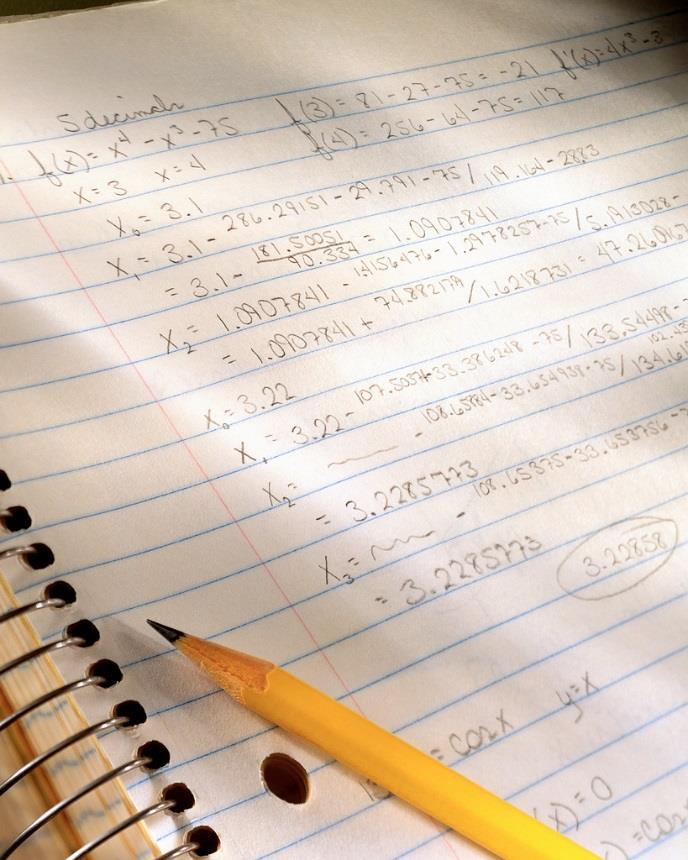 5 decimals
1. f(x) = x⁴ - x³ - 75 f(3) = 81 - 27 - 75 = -21 f'(x) = 4x³ - 3
x = 3 x = 4 f(4) = 256 - 64 - 75 = 117
x₀ = 3.1
x₁ = 3.1 - 286.29151 - 29.791 - 75 / 119.164 - 2883
= 3.1 - 181.50051 / 90.334 = 1.0907841
x₂ = 1.0907841 - 1.4156476 - 1.2978257 - 75 / 5.1913028 -
= 1.0907841 + 74.882179 / 1.6218731 = 47.26
x₀ = 3.22
x₁ = 3.22 - 107.50574 - 33.386248 - 75 / 133.54498 -
x₂ = - 108.65884 - 33.654938 - 75 / 134.61
= 3.2285773
x₃ = - 108.65375 - 33.653756 -
= 3.2285773 3.22858
= cos x y = x
(x) = 0
) = cos